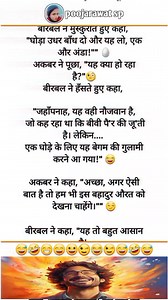 poojarawat sp
बीरबल ने मुस्कुराते हुए कहा,
"घोड़ा उधर बाँध दो और यह लो, एक
और अंडा!"
अकबर ने पूछा, "यह क्या हो रहा
है?"
बीरबल ने हँसते हुए कहा,
"जहाँपनाह, यह वही नौजवान है,
जो कह रहा था कि बीवी पै'र की जू'ती
है। लेकिन....
एक घोड़े के लिए यह बेगम की गुलामी
करने आ गया!"
अकबर ने कहा, "अच्छा, अगर ऐसी
बात है तो हम भी इस बहादुर औरत को
देखना चाहेंगे।"
बीरबल ने कहा, "यह तो बहुत आसान